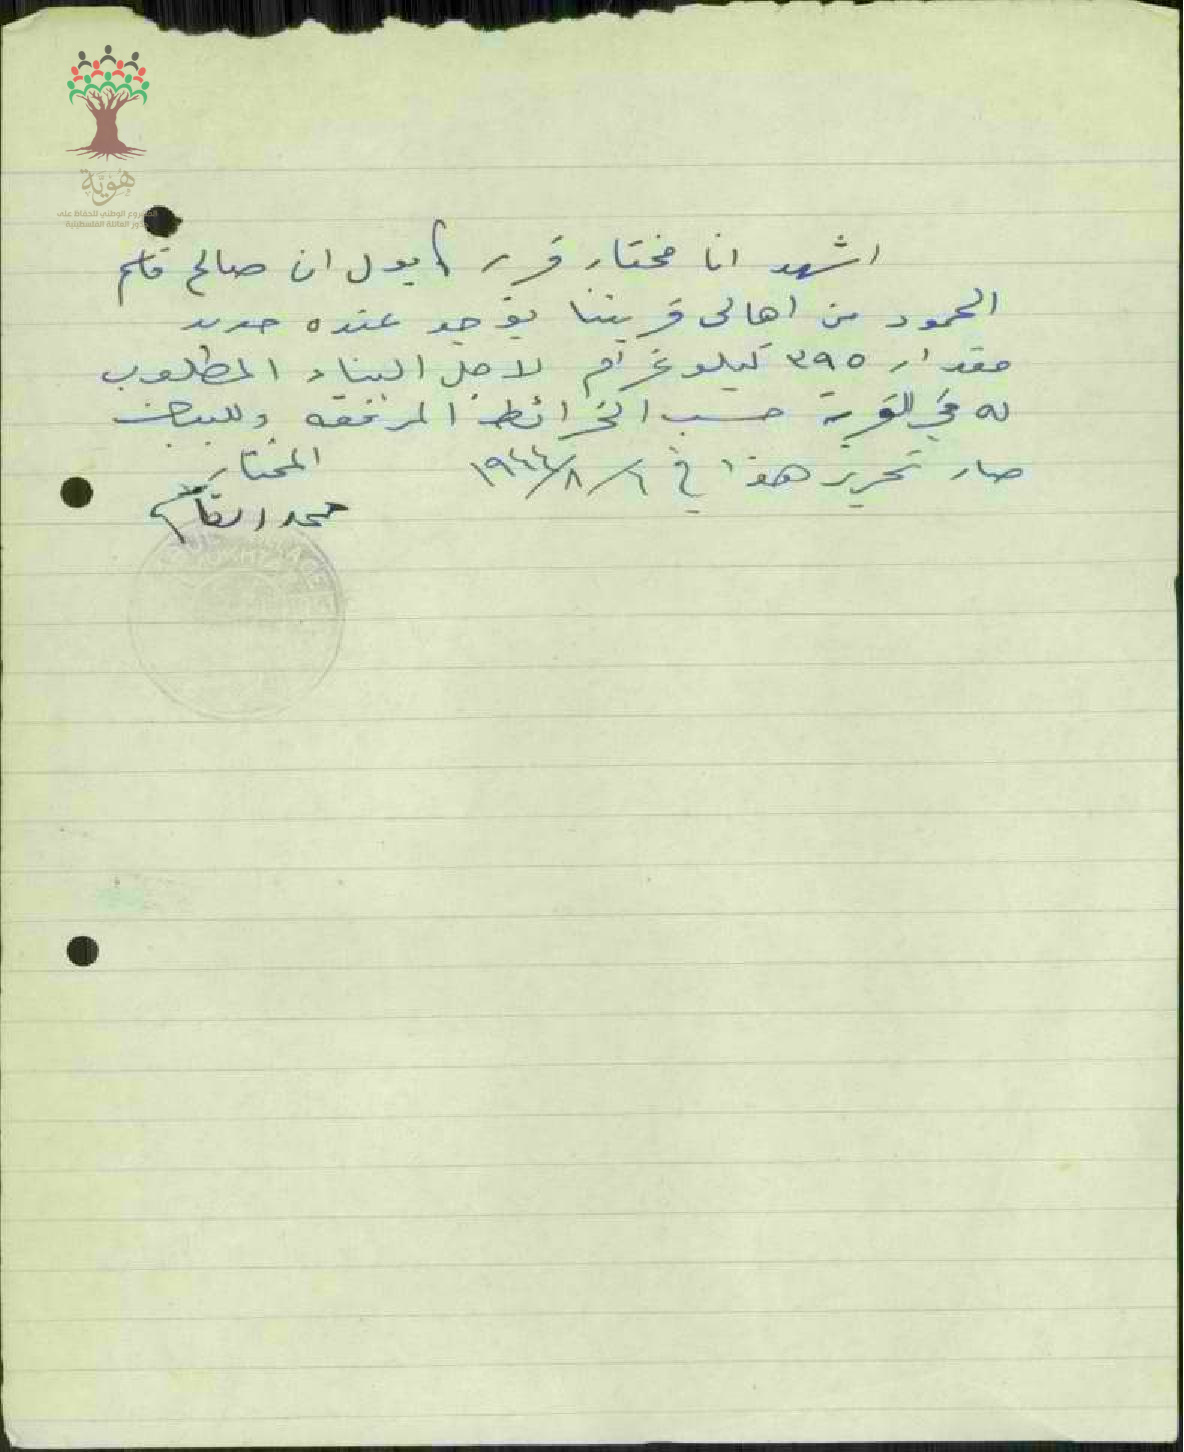 هوية
المشروع الوطني للحفاظ على
جذور العائلة الفلسطينية
اشهد انا مختار قرية ان صالح قاسم
الحمود من اهالي قريتنا يوجد عنده حديد
مقدار ٣٩٥ كيلو غرام لاجل البناء المطلوب
له في القرية حسب الخرائط المرفقه وللبيان
صار تحرير هذا في ٦/٨/١٩٤٤
المختار
محمد القاسم